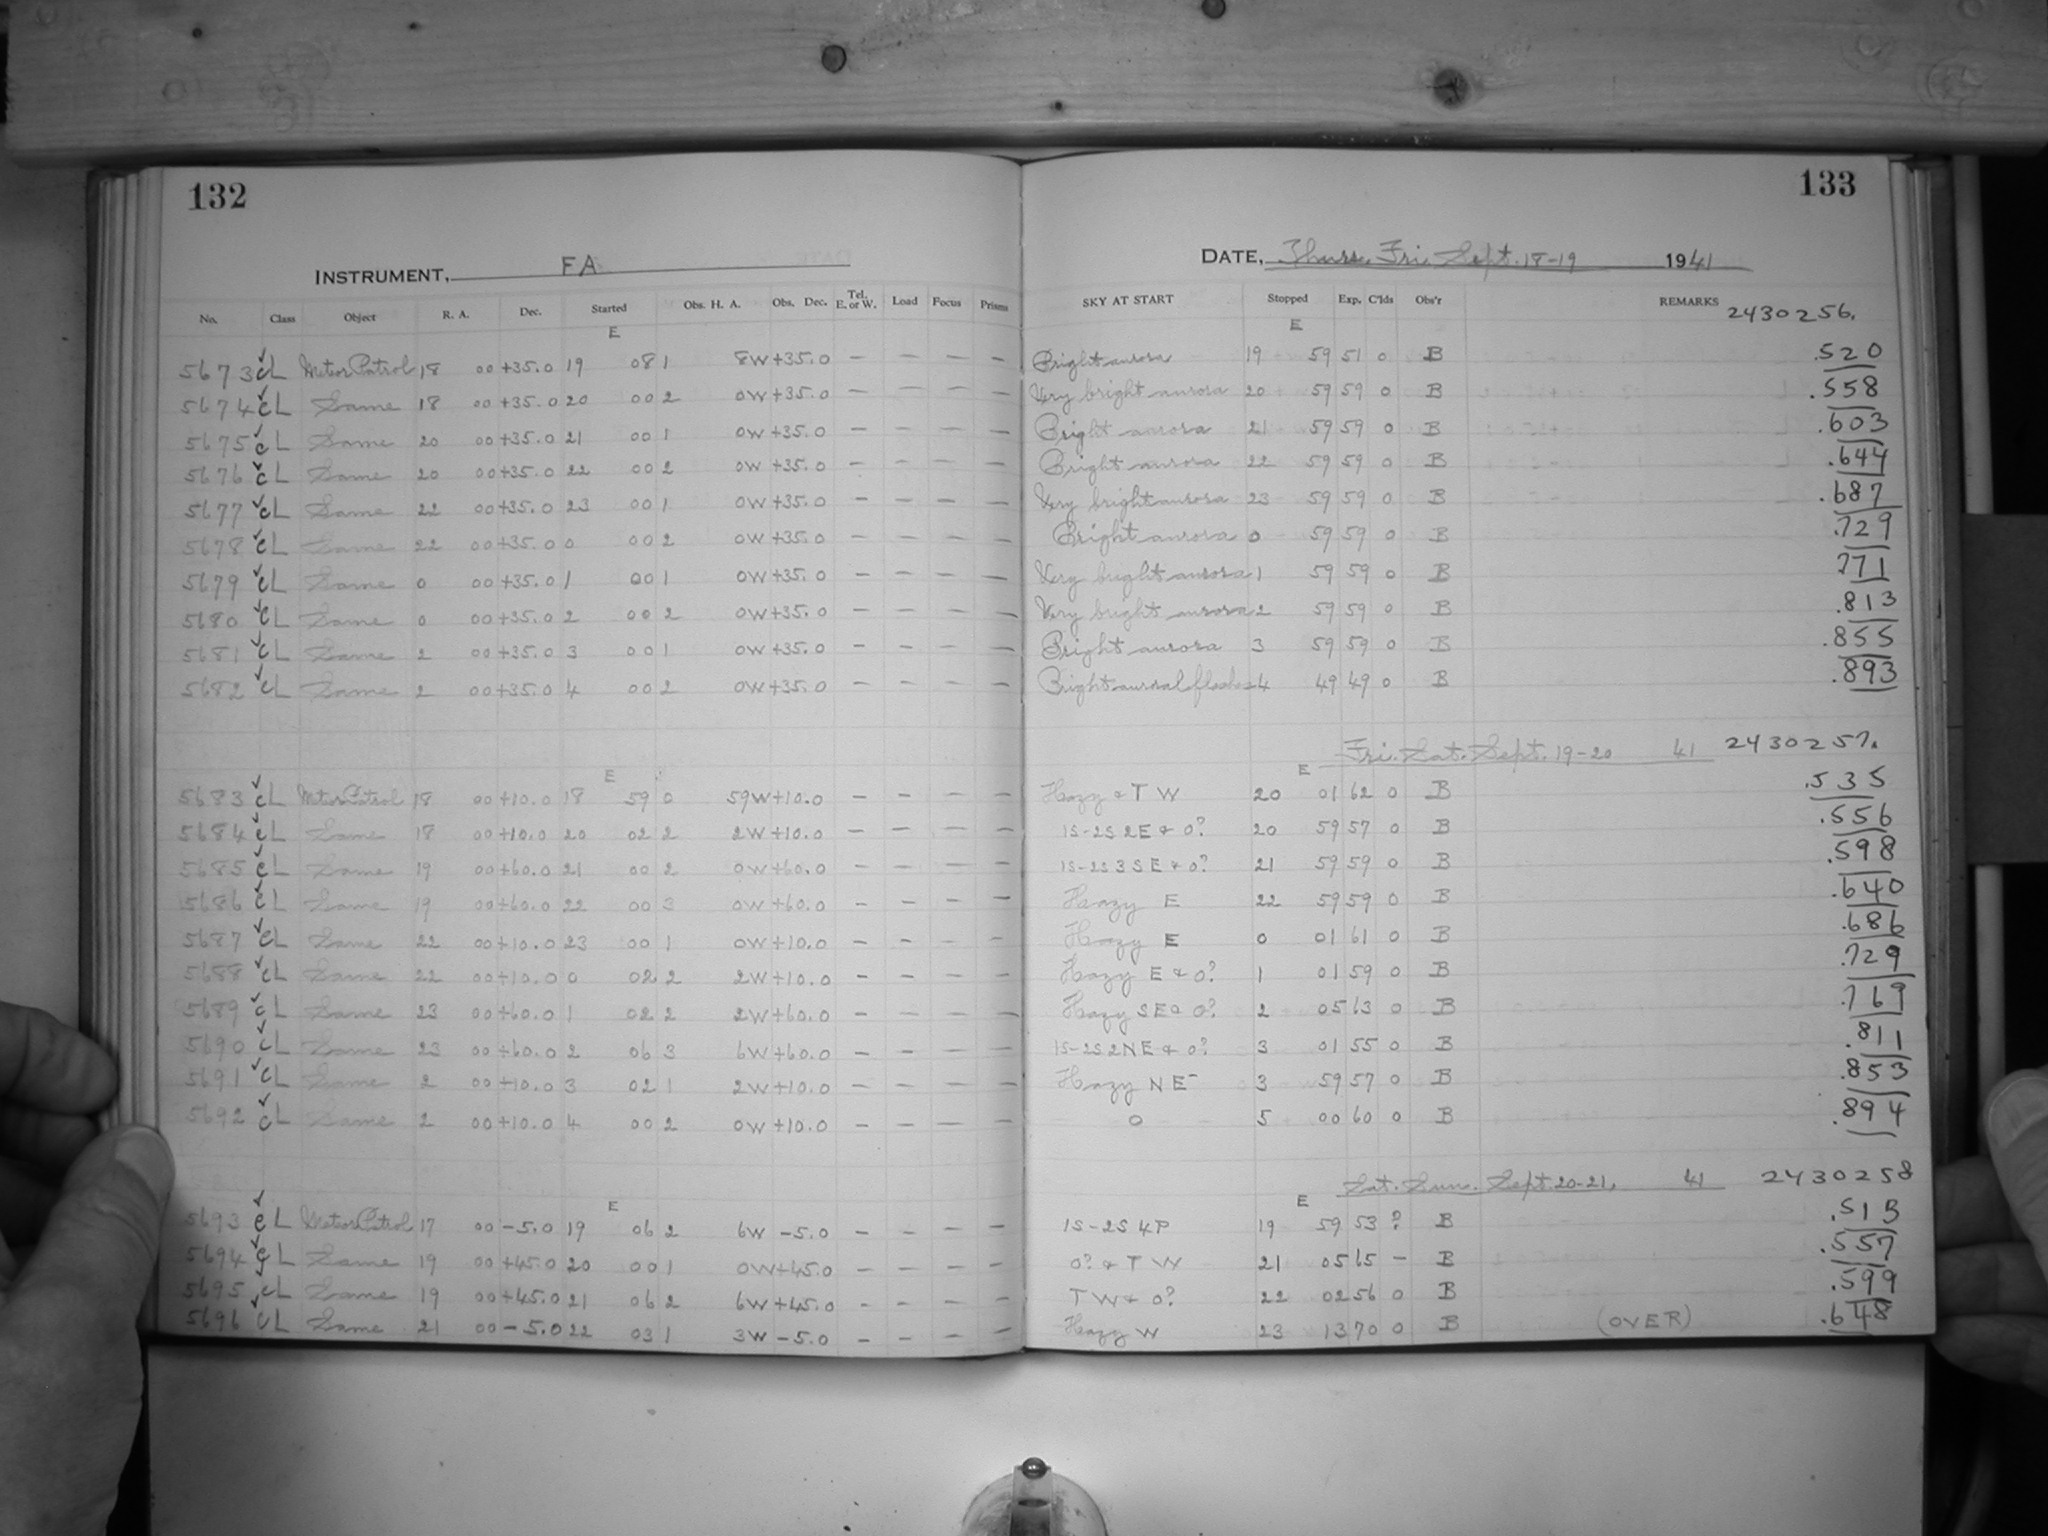 132
133
INSTRUMENT, FA
DATE, Thurs. Fri. Sept. 18-19 1941
No. Class Object R. A. Dec. Started Obs. H. A. Obs. Dec. Tel. E. or W. Load Focus Prisms SKY AT START Stopped Exp. C'lds Obs'r REMARKS 2430256.
E E
5673 cL Meteor Patrol 18 00 +35.0 19 08 1 8W +35.0 — — — — Bright aurora 19 59 51 0 B .520
5674 cL Same 18 00 +35.0 20 00 2 0W +35.0 — — — — Very bright aurora 20 59 59 0 B .558
5675 cL Same 20 00 +35.0 21 00 1 0W +35.0 — — — — Bright aurora 21 59 59 0 B .603
5676 cL Same 20 00 +35.0 22 00 2 0W +35.0 — — — — Bright aurora 22 59 59 0 B .644
5677 cL Same 22 00 +35.0 23 00 1 0W +35.0 — — — — Very bright aurora 23 59 59 0 B .687
5678 cL Same 22 00 +35.0 0 00 2 0W +35.0 — — — — Bright aurora 0 59 59 0 B .729
5679 cL Same 0 00 +35.0 1 00 1 0W +35.0 — — — — Very bright aurora 1 59 59 0 B .771
5680 cL Same 0 00 +35.0 2 00 2 0W +35.0 — — — — Very bright aurora 2 59 59 0 B .813
5681 cL Same 2 00 +35.0 3 00 1 0W +35.0 — — — — Bright aurora 3 59 59 0 B .855
5682 cL Same 2 00 +35.0 4 00 2 0W +35.0 — — — — Bright auroral flashes 4 49 49 0 B .893
Fri. Sat. Sept. 19-20 41 2430257.
E E
5683 cL Meteor Patrol 18 00 +10.0 18 59 0 59W +10.0 — — — — Hazy & T W 20 01 62 0 B .535
5684 cL Same 18 00 +10.0 20 02 2 2W +10.0 — — — — 1S-2S 2E & 0? 20 59 57 0 B .556
5685 cL Same 19 00 +60.0 21 00 2 0W +60.0 — — — — 1S-2S 3SE & 0? 21 59 59 0 B .598
5686 cL Same 19 00 +60.0 22 00 3 0W +60.0 — — — — Hazy E 22 59 59 0 B .640
5687 cL Same 22 00 +10.0 23 00 1 0W +10.0 — — — — Hazy E 0 01 61 0 B .686
5688 cL Same 22 00 +10.0 0 02 2 2W +10.0 — — — — Hazy E & 0? 1 01 59 0 B .729
5689 cL Same 23 00 +60.0 1 02 2 2W +60.0 — — — — Hazy SE & 0? 2 05 63 0 B .769
5690 cL Same 23 00 +60.0 2 06 3 6W +60.0 — — — — 1S-2S 2NE & 0? 3 01 55 0 B .811
5691 cL Same 2 00 +10.0 3 02 1 2W +10.0 — — — — Hazy NE 3 59 57 0 B .853
5692 cL Same 2 00 +10.0 4 00 2 0W +10.0 — — — — 0 5 00 60 0 B .894
Sat. Sun. Sept. 20-21, 41 2430258
E E
5693 cL Meteor Patrol 17 00 -5.0 19 06 2 6W -5.0 — — — — 1S-2S 4P 19 59 53 ? B
5694 cL Same 19 00 +45.0 20 00 1 0W +45.0 — — — — 0? & T W 21 05 65 — B .557
5695 cL Same 19 00 +45.0 21 06 2 6W +45.0 — — — — TW & 0? 22 02 56 0 B .599
5696 cL Same 21 00 -5.0 22 03 1 3W -5.0 — — — — Hazy W 23 13 70 0 B (OVER) .648